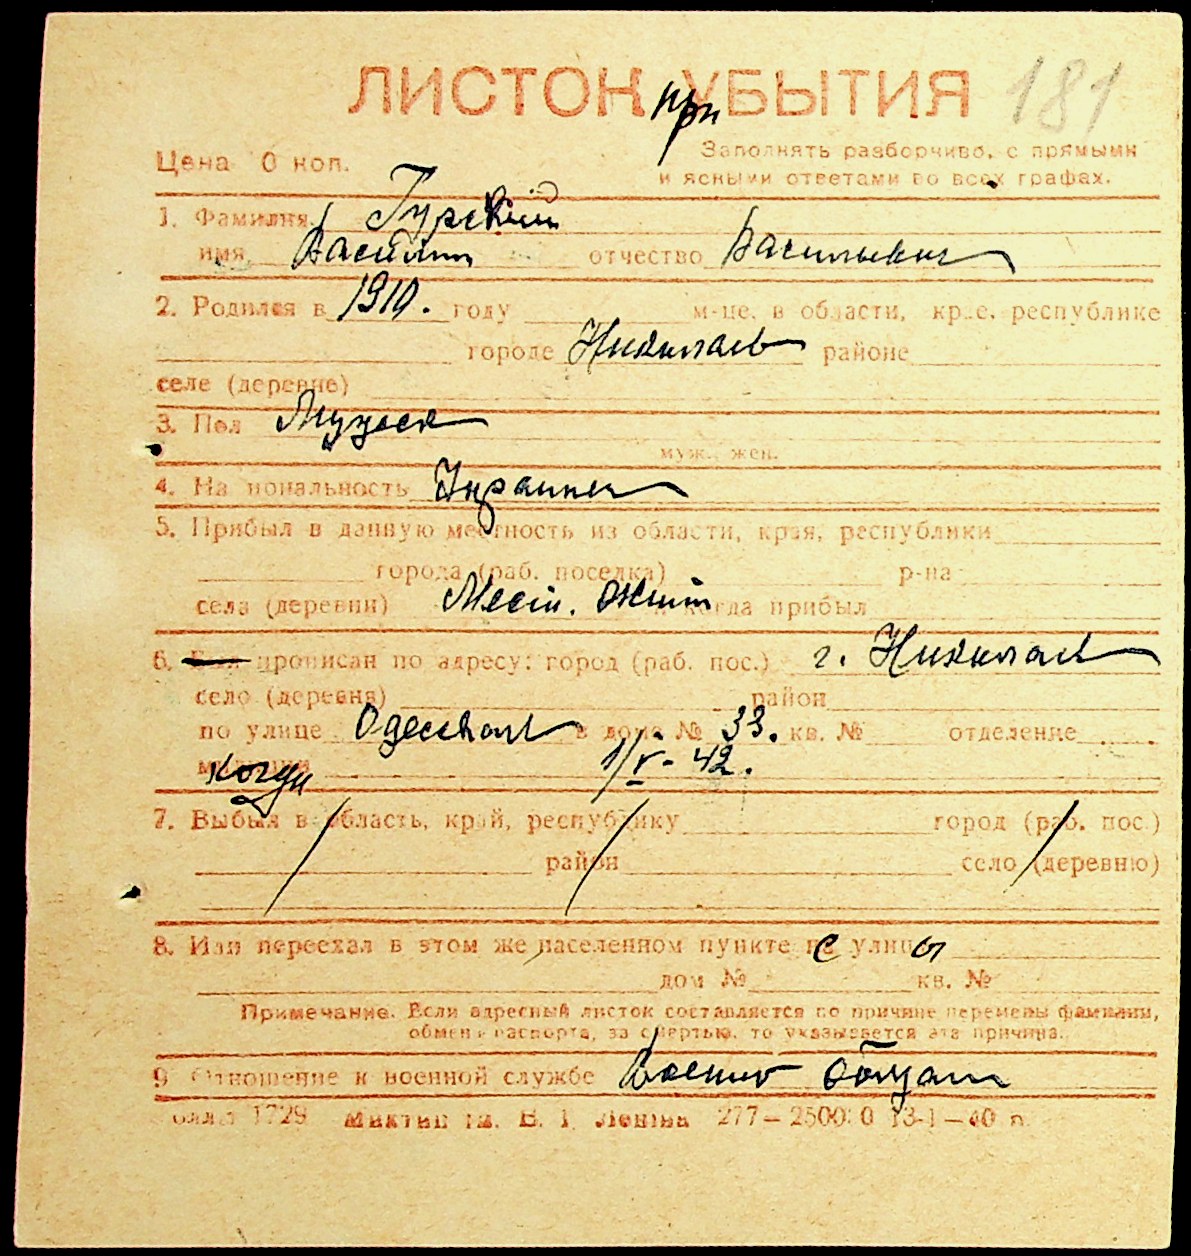 ЛИСТОК УБЫТИЯ 181
при
Цена 0 коп. Заполнять разборчиво, с прямыми
и ясными ответами во всех графах.
1. Фамилия Гурский
имя Василий отчество Васильевич
2. Родился в 1910. году м-це, в области, крае, республике
городе Николаев районе
селе (деревне)
3. Пол Мужск
муж., жен.
4. Национальность Украинец
5. Прибыл в данную местность из области, края, республики
города (раб. поселка) р-на
села (деревни) Мест. жит когда прибыл
6. Был прописан по адресу: город (раб. пос.) г. Николаев
село (деревня) район
по улице Одесская в доме № 33. кв. № отделение
милиции когда 1/V-42.
7. Выбыл в область, край, республику город (раб. пос.)
район село (деревню)
8. Или переехал в этом же населенном пункте с улицы
дом № кв. №
Примечание. Если адресный листок составляется по причине перемены фамилии,
обмена паспорта, за смертью, то указывается эта причина.
9 Отношение к военной службе Военно обязан
1729 им. В. І. Леніна 277—2500 0 13-1—40 п.